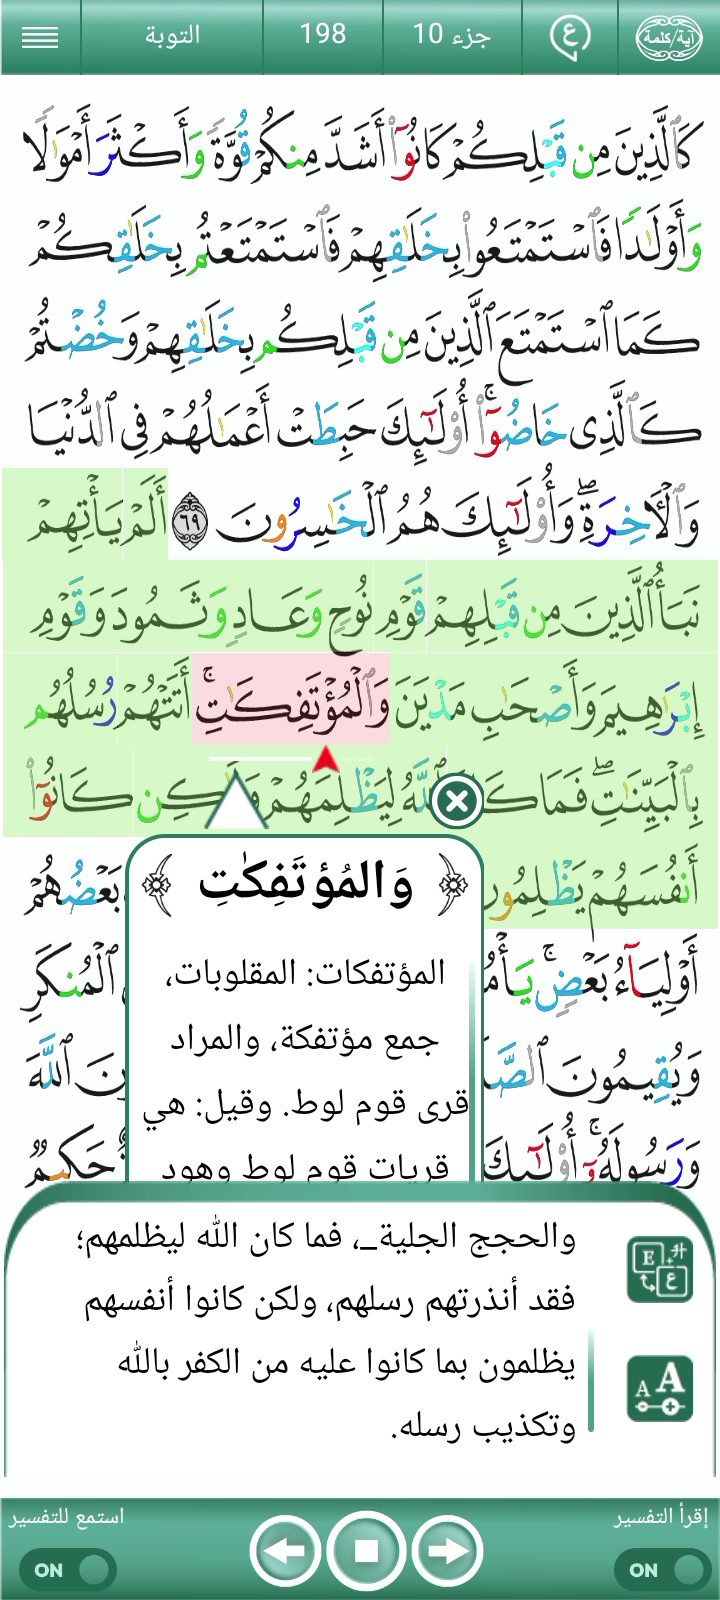 التوبة
198
جزء 10
آية/كلمة
كَٱلَّذِينَ مِن قَبْلِكُمْ كَانُوٓا۟ أَشَدَّ مِنكُمْ قُوَّةً وَأَكْثَرَ أَمْوَٰلًا
وَأَوْلَٰدًا فَٱسْتَمْتَعُوا۟ بِخَلَٰقِهِمْ فَٱسْتَمْتَعْتُم بِخَلَٰقِكُمْ
كَمَا ٱسْتَمْتَعَ ٱلَّذِينَ مِن قَبْلِكُم بِخَلَٰقِهِمْ وَخُضْتُمْ
كَٱلَّذِى خَاضُوٓا۟ ۚ أُو۟لَٰٓئِكَ حَبِطَتْ أَعْمَٰلُهُمْ فِى ٱلدُّنْيَا
وَٱلْءَاخِرَةِ ۖ وَأُو۟لَٰٓئِكَ هُمُ ٱلْخَٰسِرُونَ ٦٩ أَلَمْ يَأْتِهِمْ
نَبَأُ ٱلَّذِينَ مِن قَبْلِهِمْ قَوْمِ نُوحٍ وَعَادٍ وَثَمُودَ وَقَوْمِ
إِبْرَٰهِيمَ وَأَصْحَٰبِ مَدْيَنَ وَٱلْمُؤْتَفِكَٰتِ ۚ أَتَتْهُمْ رُسُلُهُم
بِٱلْبَيِّنَٰتِ ۖ فَمَا كَا ٱللَّهُ لِيَظْلِمَهُمْ وَلَٰكِن كَانُوٓا۟
أَنفُسَهُمْ يَظْلِمُو بَعْضُهُمْ
أَوْلِيَآءُ بَعْضٍ ۚ يَأْمُ ٱلْمُنكَرِ
وَيُقِيمُونَ ٱلصَّ ونَ ٱللَّهَ
وَرَسُولَهُۥٓ ۚ أُو۟لَٰٓئِكَ حَكِيمٌ
وَالمُؤتَفِكَٰتِ
المؤتفكات: المقلوبات،
جمع مؤتفكة، والمراد
قرى قوم لوط. وقيل: هي
قريات قوم لوط وهود
والحجج الجلية_، فما كان الله ليظلمهم؛
فقد أنذرتهم رسلهم، ولكن كانوا أنفسهم
يظلمون بما كانوا عليه من الكفر بالله
وتكذيب رسله.
إقرأ التفسير
استمع للتفسير
ON
ON